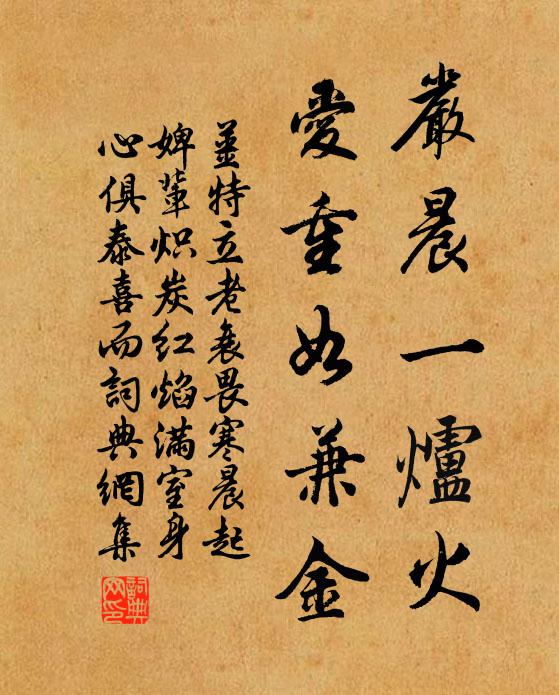 嚴晨一爐火
愛重如兼金
姜特立老衰畏寒晨起
婢輩炽炭红焰滿室身
心俱泰喜而詞典網集
詞典
网印